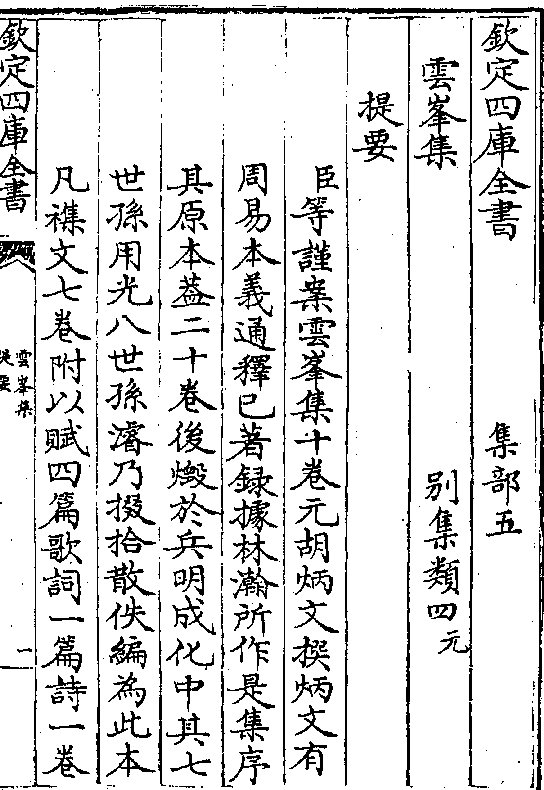 欽定四庫全書　集部五
雲峯集　別集類四元
提要
臣等謹案雲峯集十卷元胡炳文撰炳文有
周易本義通釋已著録據林瀚所作是集序
其原本葢二十卷後燬於兵明成化中其七
世孫用光八世孫濬乃掇拾散佚編為此本
凡襍文七卷附以賦四篇歌詞一篇詩一卷
欽定四庫全書
雲峯集
提要
一